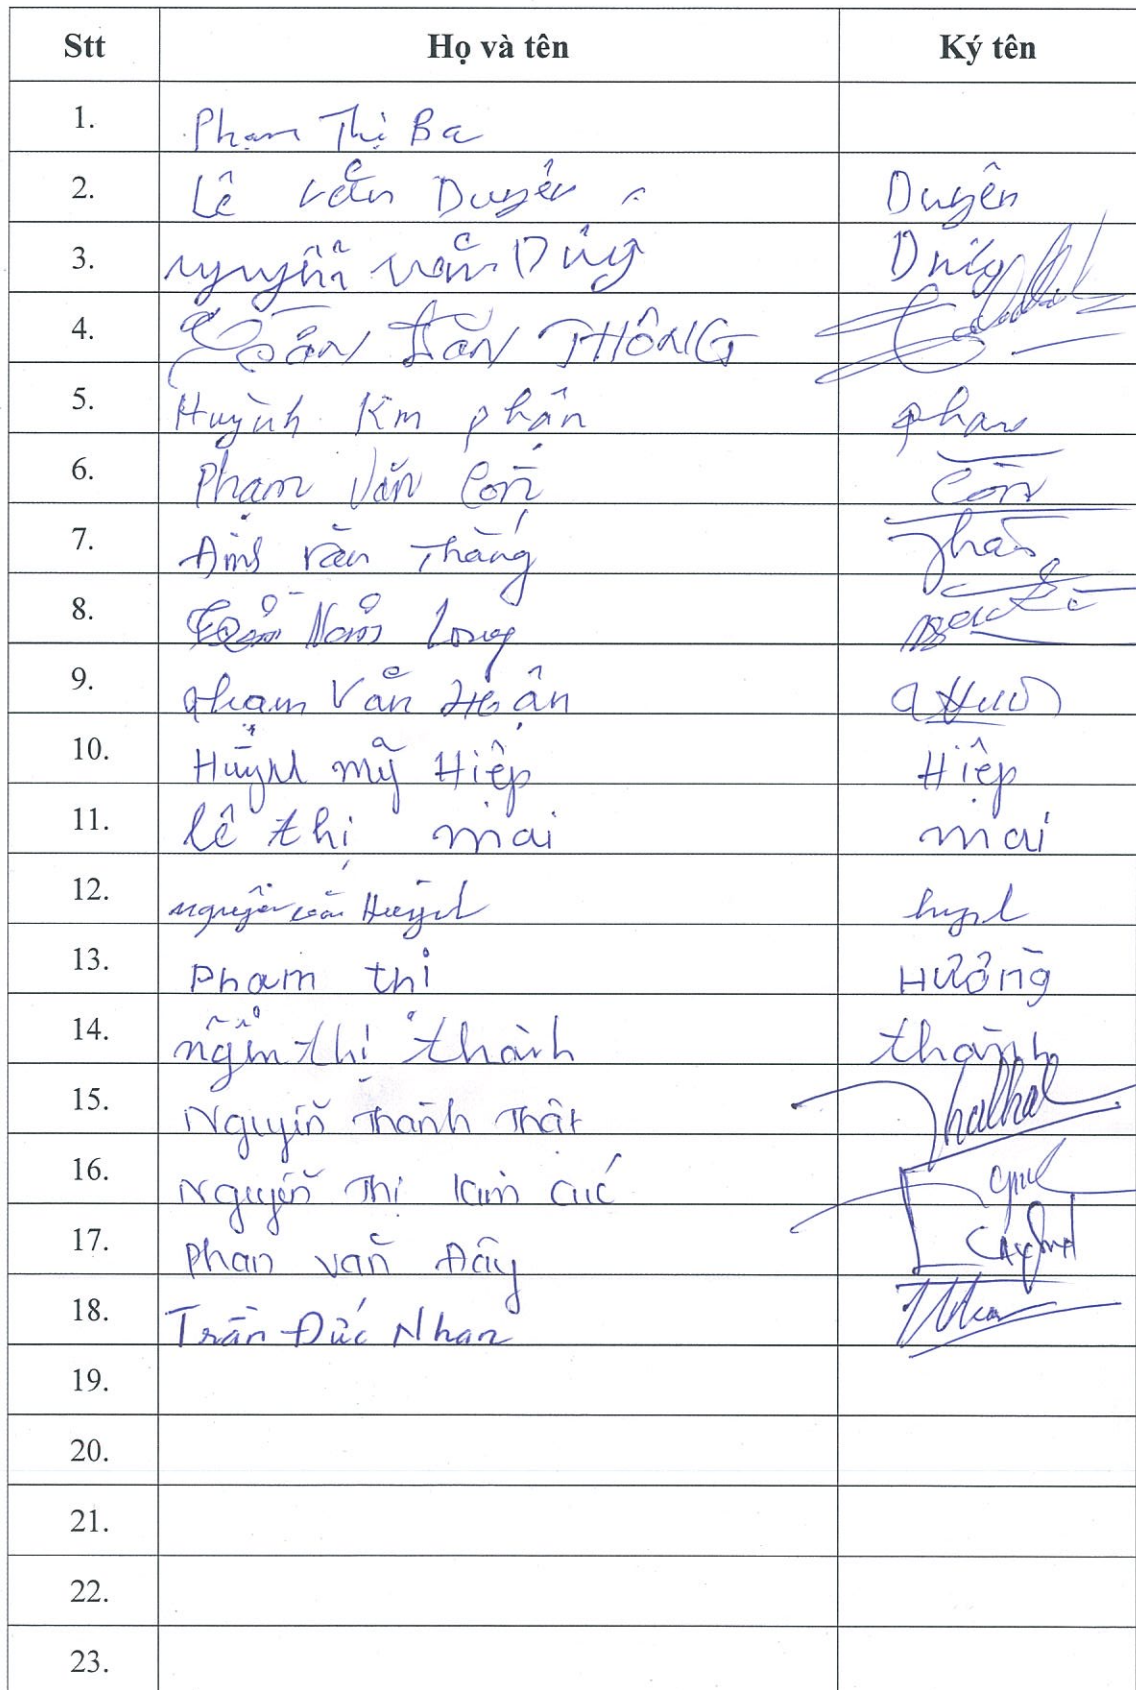 Stt Họ và tên Ký tên
1. Phạm Thị Ba
2. Lê Văn Duyên Duyên
3. Nguyễn Văn Dũng Dũng
4. Trần Văn THÔNG
5. Huỳnh Km phân phan
6. Phạm Văn Còn Còn
7. Đinh Văn Thắng Thắn
8. Long
9. Pham Văn Hoân
10. Huỳnh mỹ Hiệp Hiệp
11. lê thị mai mai
12. nguyễn văn Huỳnh
13. Pham thi Hưởng
14. thị thành thành
15. Nguyễn Thành Thật
16. Nguyễn Thị Kim Cúc
17. Phan văn Đây
18. Trần Đức Nhan
19.
20.
21.
22.
23.